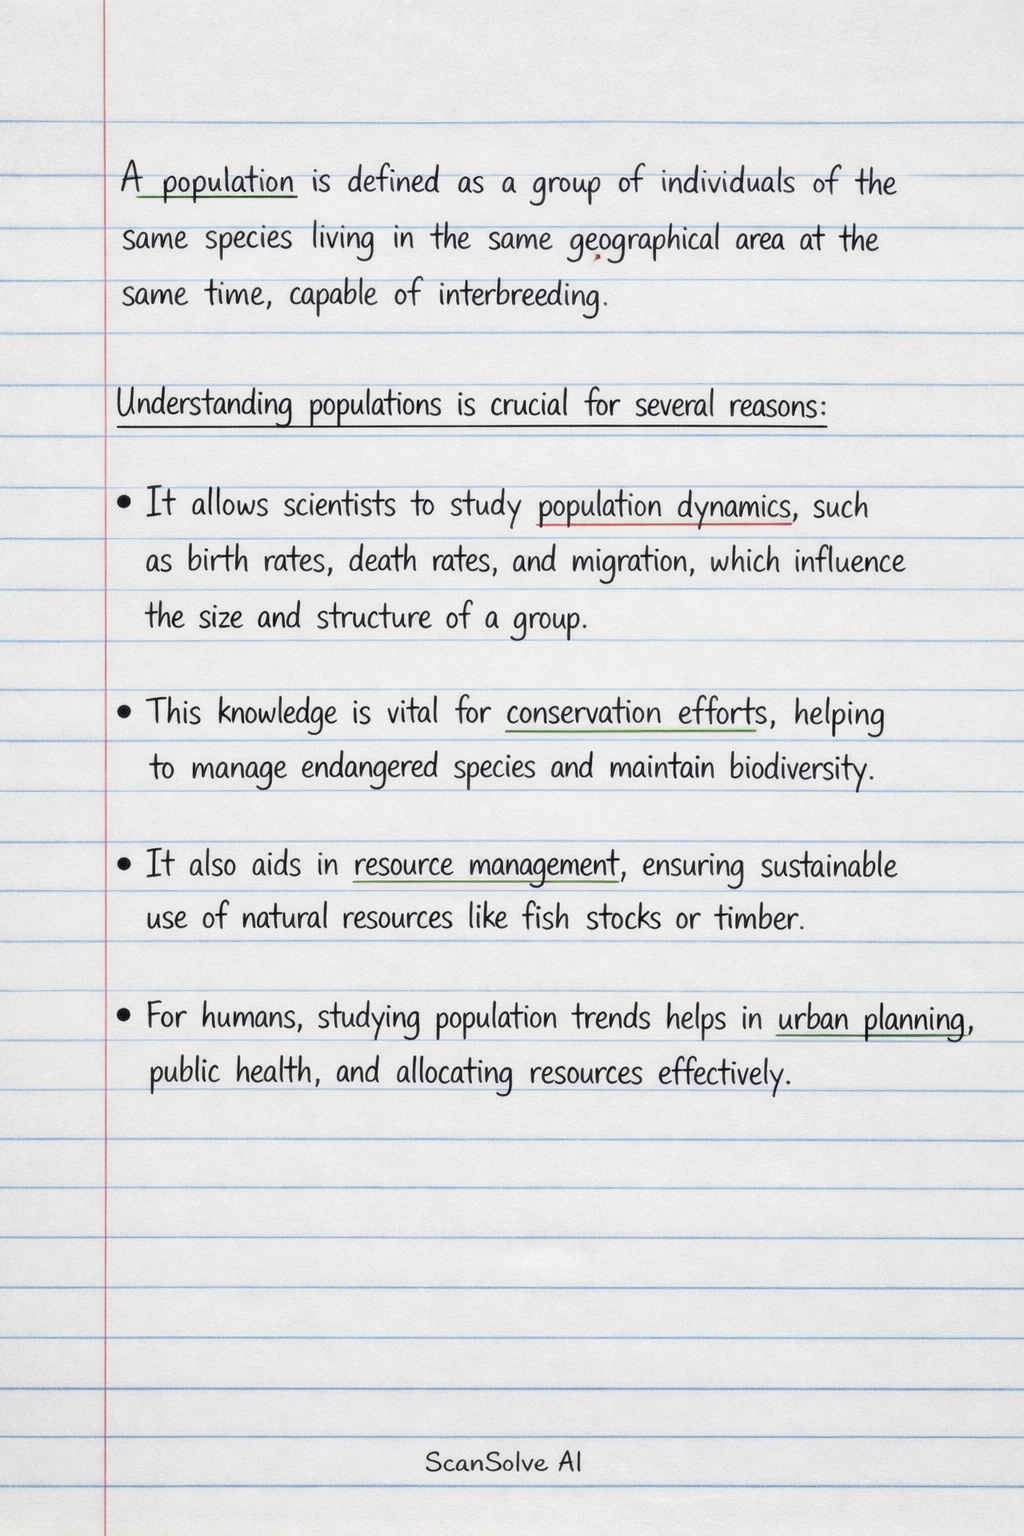 A population is defined as a group of individuals of the
same species living in the same geographical area at the
same time, capable of interbreeding.
Understanding populations is crucial for several reasons:
• It allows scientists to study population dynamics, such
as birth rates, death rates, and migration, which influence
the size and structure of a group.
• This knowledge is vital for conservation efforts, helping
to manage endangered species and maintain biodiversity.
• It also aids in resource management, ensuring sustainable
use of natural resources like fish stocks or timber.
• For humans, studying population trends helps in urban planning,
public health, and allocating resources effectively.
ScanSolve AI